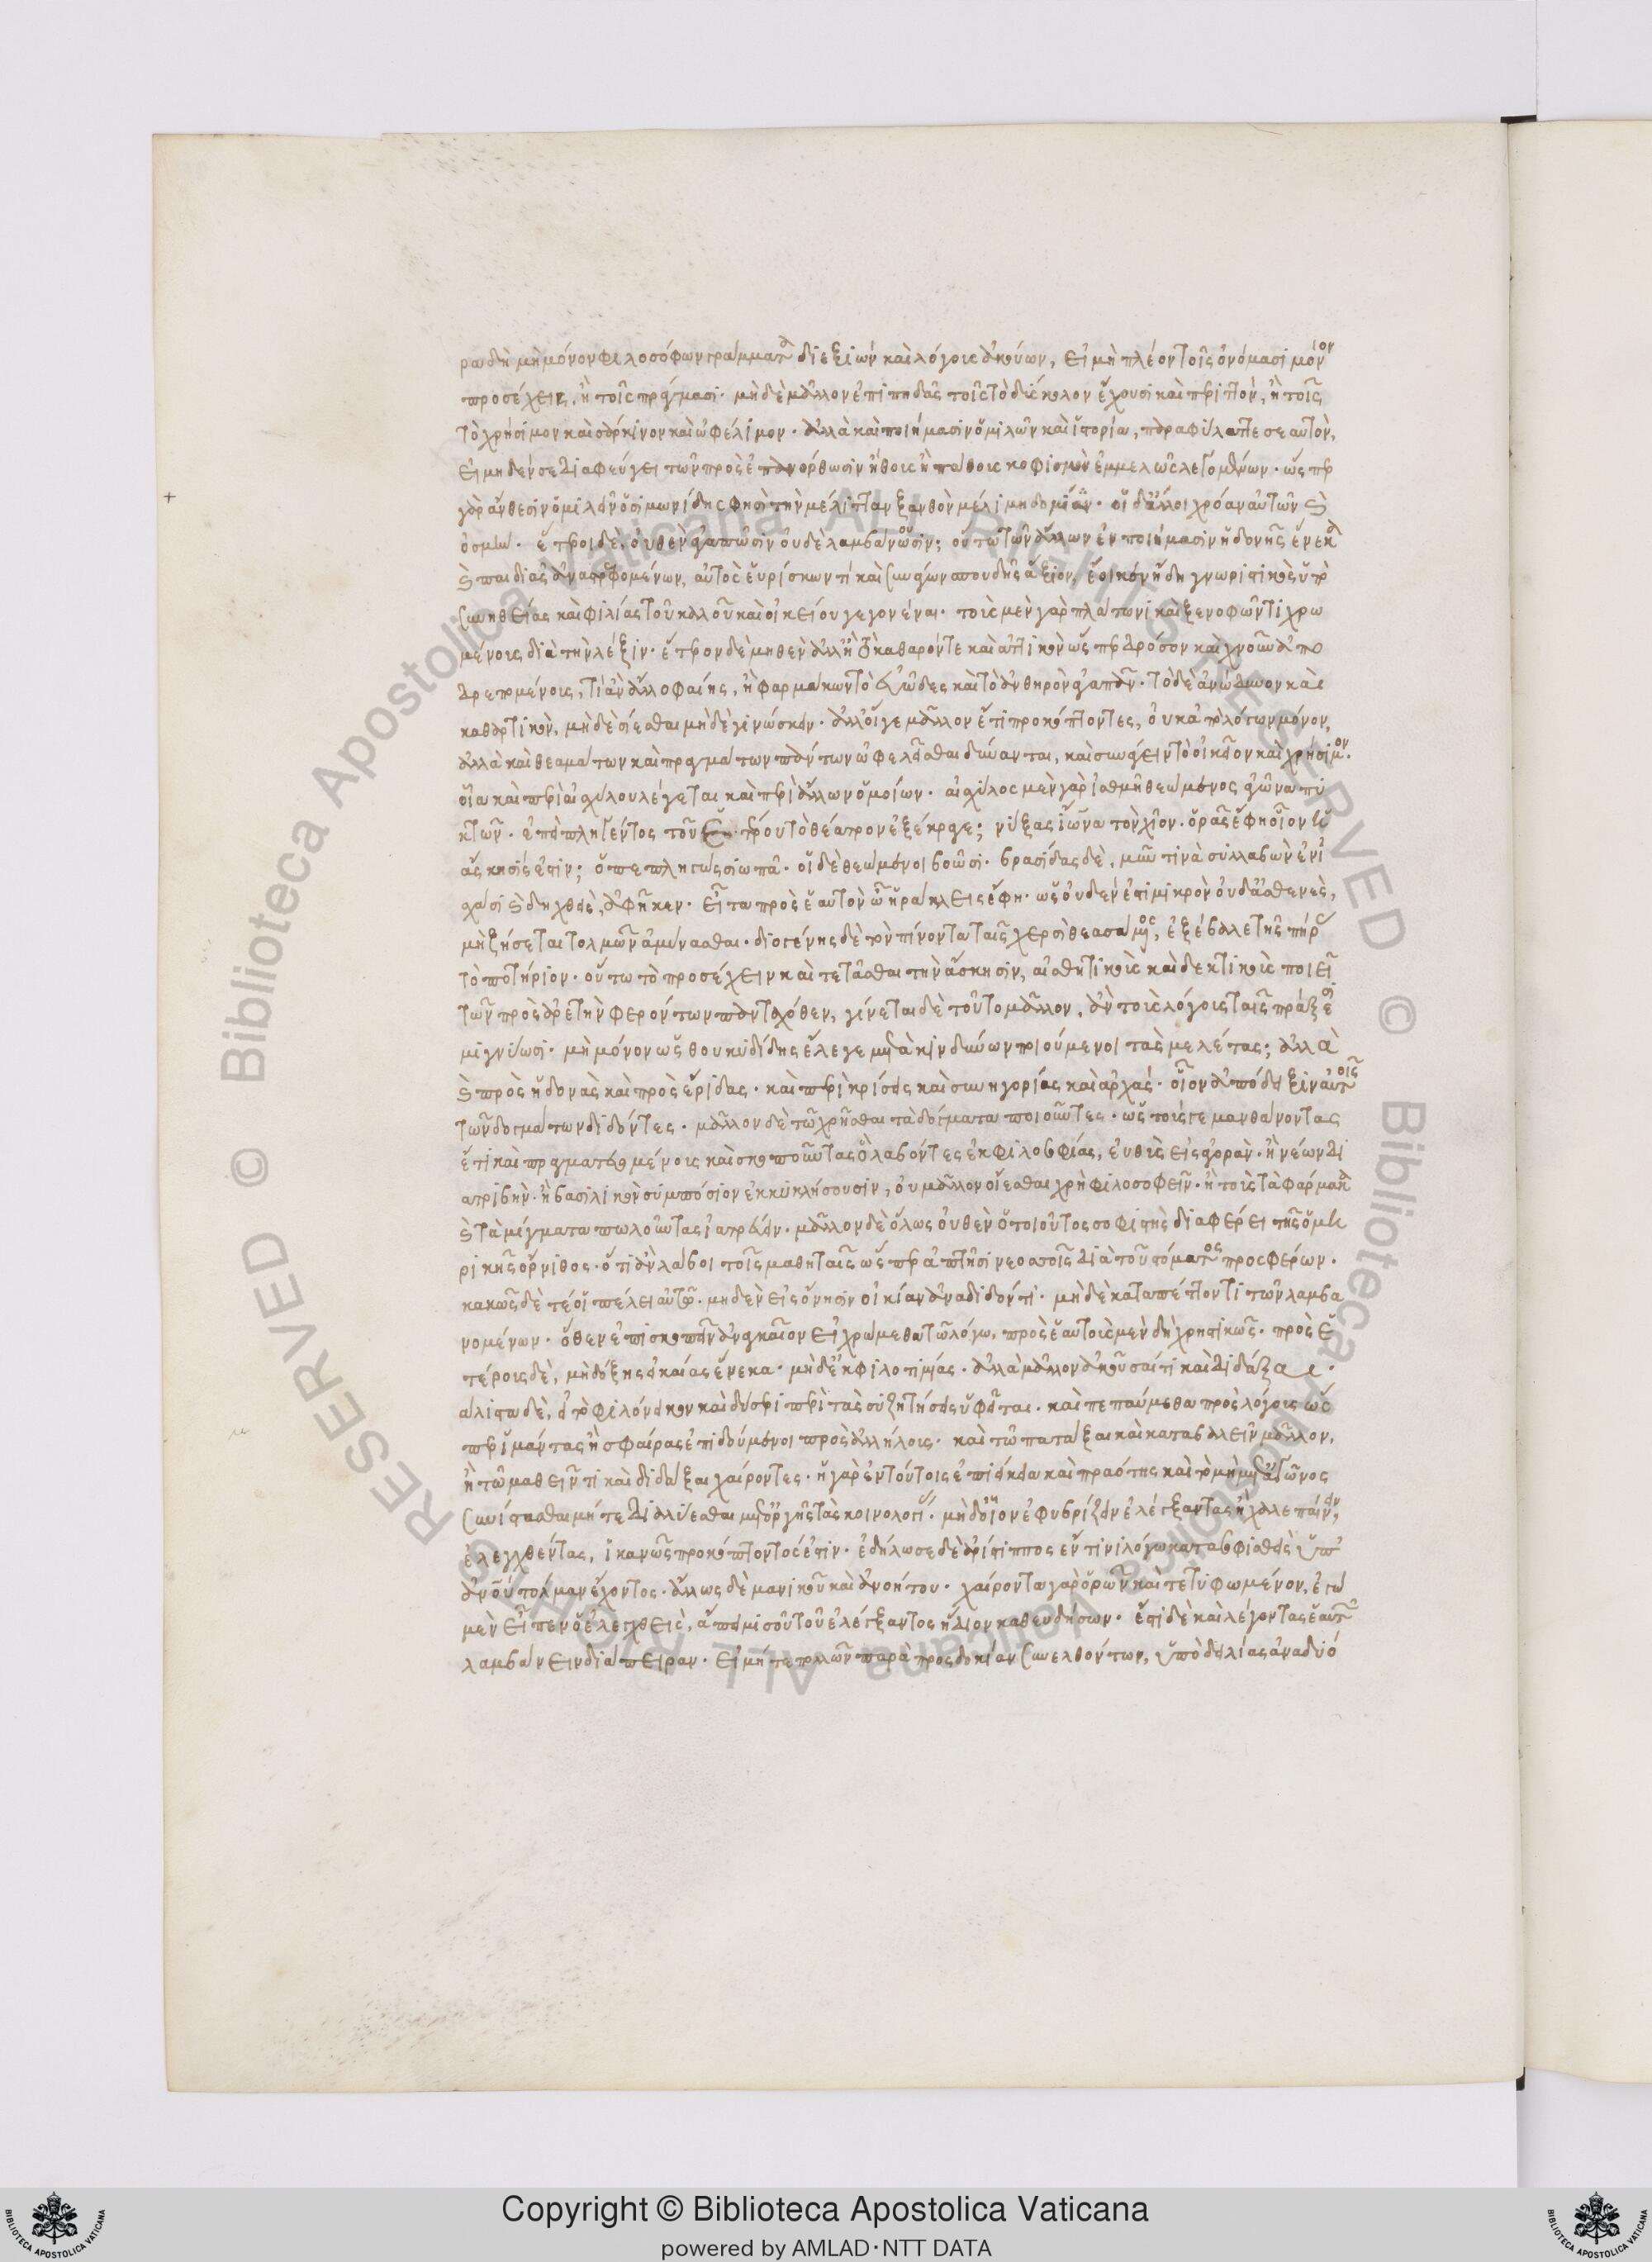 ρα δὴ μὴ μόνον φιλοσόφων γράμματα διεξιὼν καὶ λόγοις ἀκούων, εἰ μὴ πλέον τοῖς ὀνόμασι μόνον
προσέχειν, ἢ τοῖς πράγμασι· μὴ δὲ μᾶλλον ἐπιπηδᾶς τοῖς τὸ δύσκολον ἔχουσι καὶ περιττὸν, ἢ τοῖς
τὸ χρήσιμον καὶ σάρκινον καὶ ὠφέλιμον· ἀλλὰ καὶ ποιήμασιν ὁμιλῶν καὶ ἱστορία, παραφύλαττε σεαυτὸν,
εἰ μηδέν σε διαφεύγει τῶν πρὸς ἐπανόρθωσιν ἤθους ἢ πάθους κουφισμὸν ἐμμελῶς λεγομένων· ὥσπερ
γὰρ ἄνθεσιν ὁμιλεῖν ὁ σιμωνίδης φησὶ τὴν μέλιτταν ξανθὸν μέλι μηδομέναν· οἱ δ' ἄλλοι χρόαν αὐτῶν καὶ
ὀσμὴν· ἕτεροι δὲ, οὐθὲν ἀγαπῶσιν οὐδὲ λαμβάνουσιν; οὕτω τῶν ἄλλων ἐν ποιήμασιν ἡδονῆς ἕνεκα
καὶ παιδιᾶς ἀναστρεφομένων, αὐτὸς εὑρίσκων τί καὶ συνάγων σπουδῆς ἄξιον, ἔοικεν ἤδη γνωριστικὸς ὑπὸ
συνηθείας καὶ φιλίας τοῦ καλοῦ καὶ οἰκείου γεγονέναι· τοὺς μὲν γὰρ πλάτωνι καὶ ξενοφῶντι χρω
μένους διὰ τὴν λέξιν· ἕτερον δὲ μηθὲν ἀλλ' ἢ τὸ καθαρόν τε καὶ ἀττικὸν ὥσπερ δρόσον καὶ χνοῦν ἀπο
δρεπομένους, τί ἂν ἄλλο φαίης, ἢ φαρμάκων τὸ εὐῶδες καὶ τὸ ἀνθηρὸν ἀγαπᾶν· τὸ δὲ ἀνώδυνον καὶ
καθαρτικὸν, μὴ δὲ σίεσθαι μὴ δὲ γινώσκειν· ἀλλ' οἵ γε μᾶλλον ἔτι προκόπτοντες, οὐκ ἀπὸ λόγων μόνον,
ἀλλὰ καὶ θεαμάτων καὶ πραγμάτων πάντων ὠφελεῖσθαι δύνανται, καὶ συνάγειν τὸ οἰκεῖον καὶ χρήσιμον·
οἷα καὶ περὶ αἰσχύλου λέγεται καὶ περὶ ἄλλων ὁμοίων· αἰσχύλος μὲν γὰρ ἰσθμῆ θεώμενος ἀγῶνα πυ
κτῶν· ἐπεὶ πληγέντος τοῦ ἑτέρου τὸ θέατρον ἐξέκραγε; νύξας ἴωνα τὸν χῖον· ὁρᾶς ἔφη οἷον ἡ
ἄσκησίς ἐστιν; ὁ πεπληγὼς σιωπᾷ· οἱ δὲ θεώμενοι βοῶσι· βρασίδας δὲ, μῦν τινὰ συλλαβὼν ἐν ἰ
σχάσι καὶ δηχθεὶς, ἀφῆκεν· εἶτα πρὸς ἑαυτὸν ὦ ἡράκλεις ἔφη· ὡς οὐδέν ἐστι μικρὸν οὐδ' ἀσθενὲς,
μὴ ζήσεται τολμῶν ἀμύνασθαι· διογένης δὲ τὸν πίνοντα ταῖς χερσὶ θεασάμενος, ἐξέβαλε τῆς πήρας
τὸ ποτήριον· οὕτω τὸ προσέχειν καὶ τετάσθαι τὴν ἄσκησιν, αἰσθητικοὺς καὶ δεκτικοὺς ποιεῖ
τῶν πρὸς ἀρετὴν φερόντων πανταχόθεν, γίνεται δὲ τοῦτο μᾶλλον, ἂν τοὺς λόγους ταῖς πράξεσι
μιγνύωσι· μὴ μόνον ὡς θουκυδίδης ἔλεγε μετὰ κινδύνων ποιούμενοι τὰς μελέτας; ἀλλὰ
καὶ πρὸς ἡδονὰς καὶ πρὸς ἔριδας· καὶ περὶ κρίσεις καὶ συνηγορίας καὶ ἀρχάς· οἷον ἀπόδειξιν αὑτοῖς
τῶν δογμάτων διδόντες· μᾶλλον δὲ τῷ χρῆσθαι τὰ δόγματα ποιοῦντες· ὡς τούς γε μανθάνοντας
ἔτι καὶ πραγματευομένους καὶ σκοποῦντας ὃ λαβόντες ἐκ φιλοσοφίας, εὐθὺς εἰς ἀγορὰν· ἢ νέων δι
ατριβὴν· ἢ βασιλικὸν συμπόσιον ἐκκυκλήσουσιν, οὐ μᾶλλον οἴεσθαι χρὴ φιλοσοφεῖν· ἢ τοὺς τὰ φάρμακα
καὶ τὰ μίγματα πωλοῦντας ἰατρεύειν· μᾶλλον δὲ ὅλως οὐθὲν ὁ τοιοῦτος σοφιστὴς διαφέρει τῆς ὁμη
ρικῆς ὄρνιθος· ὅ τι ἂν λάβοι τοῖς μαθηταῖς ὥσπερ ἀπτῆσι νεοσσοῖς διὰ τοῦ στόματος προσφέρων·
κακῶς δὲ τέ οἱ πέλει αὐτῷ· μηδὲν εἰς ὄνησιν οἰκίαν ἀναδιδόντι· μὴ δὲ καταπέττοντι τῶν λαμβα
νομένων· ὅθεν ἐπισκοπεῖν ἀναγκαῖον εἰ χρώμεθα τῷ λόγω, πρὸς ἑαυτοὺς μὲν δὴ χρηστικῶς· πρὸς ἑ
τέρους δὲ, μὴ δόξης εἰκαίας ἕνεκα· μὴ δ' ἐκ φιλοτιμίας· ἀλλὰ μᾶλλον ἀκοῦσαί τι καὶ διδάξαι·
μάλιστα δὲ, εἰ τὸ φιλόνεικον καὶ δύσερι περὶ τὰς συζητήσεις ὑφεῖται· καὶ πεπαύμεθα πρὸς λόγους ὥσ
περ ἱμάντας ἢ σφαίρας ἐπιδούμενοι πρὸς ἀλλήλους· καὶ τῷ πατάξαι καὶ καταβαλεῖν μᾶλλον,
ἢ τῷ μαθεῖν τι καὶ διδάξαι χαίροντες· ἡ γὰρ ἐν τούτοις ἐπιείκεια καὶ πραότης καὶ τὸ μὴ μετ' ἀγῶνος
συνίστασθαι μήτε διαλύεσθαι μετ' ὀργῆς τὰς κοινολογίας· μὴ δ' οἷον ἐφυβρίζειν ἐλέγξαντας ἢ χαλεπαίνειν,
ἐλεγχθέντας, ἱκανῶς προκόπτοντός ἐστιν· ἐδήλωσε δὲ ἀρίστιππος ἔν τινι λόγω κατασοφισθεὶς ὑπ'
ἀνθρώπου τόλμαν ἔχοντος· ἄλλως δὲ μανικοῦ καὶ ἀνοήτου· χαίροντα γὰρ ὁρῶν καὶ τετυφωμένον, ἐγὼ
μὲν εἶπεν ὁ ἐλεγχθεὶς, ἄπειμι σοῦ τοῦ ἐλέγξαντος ἥδιον καθευδήσων· ἔστι δὲ καὶ λέγοντας ἑαυτῶν
λαμβάνειν διάπειραν· εἰ μήτε πολλῶν παρὰ προσδοκίαν συνελθόντων, ὑπὸ δειλίας ἀναδυό